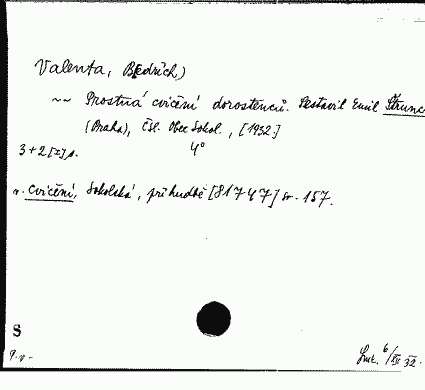 Valenta, B[edřich)
~~ Prostná cvičení dorostenců. Sestavil Emil Štrunc
(Praha), Čsl. Obec Sokol., [1932.]
3+2[I]s. 4°
v. Cvičení, Sokolská, při hudbě [81747] sv. 157.
S
6/XII 32.